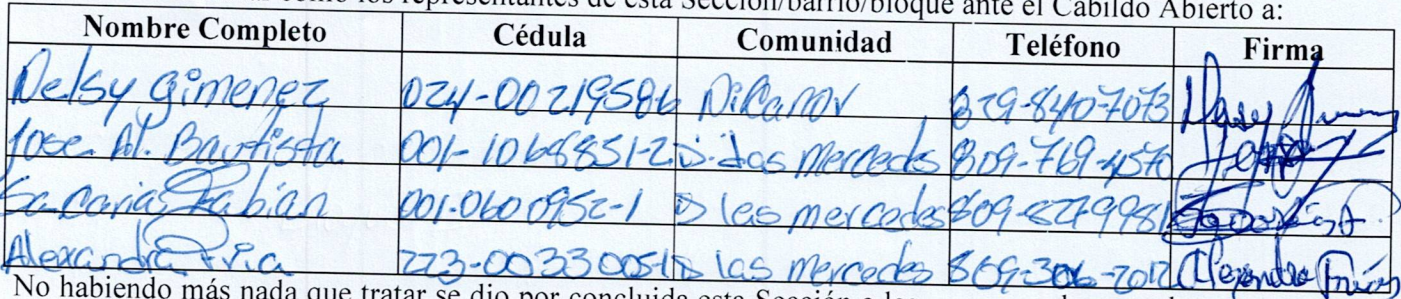 como los representantes de esta Sección/barrio/bloque ante el Cabildo Abierto a:
Nombre Completo Cédula Comunidad Teléfono Firma
Delsy Gimenez 024-00219586 Nicanor 829-840-7073
Jose Al. Bautista 001-1068851-2 B. Las Mercedes 809-769-4570
Sacarias Fabian 001-0600952-1 B las mercedes 809-827-9981
Alexandra Fria 223-0033005-1 B las Mercedes 809-306-2012 Alejandra Frias
No habiendo más nada que tratar se dio por concluida esta Sección a las